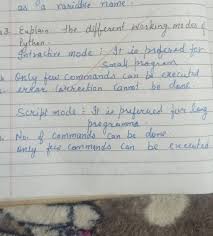 as a variable name.
3. Explain the different working modes of
Python.
Intractive mode : It is prefered for
Small program
Only few commands can be executed
error correction cannot be done
Script mode : It is preferred for long
programms.
No. of commands can be done
only few commands can be executed